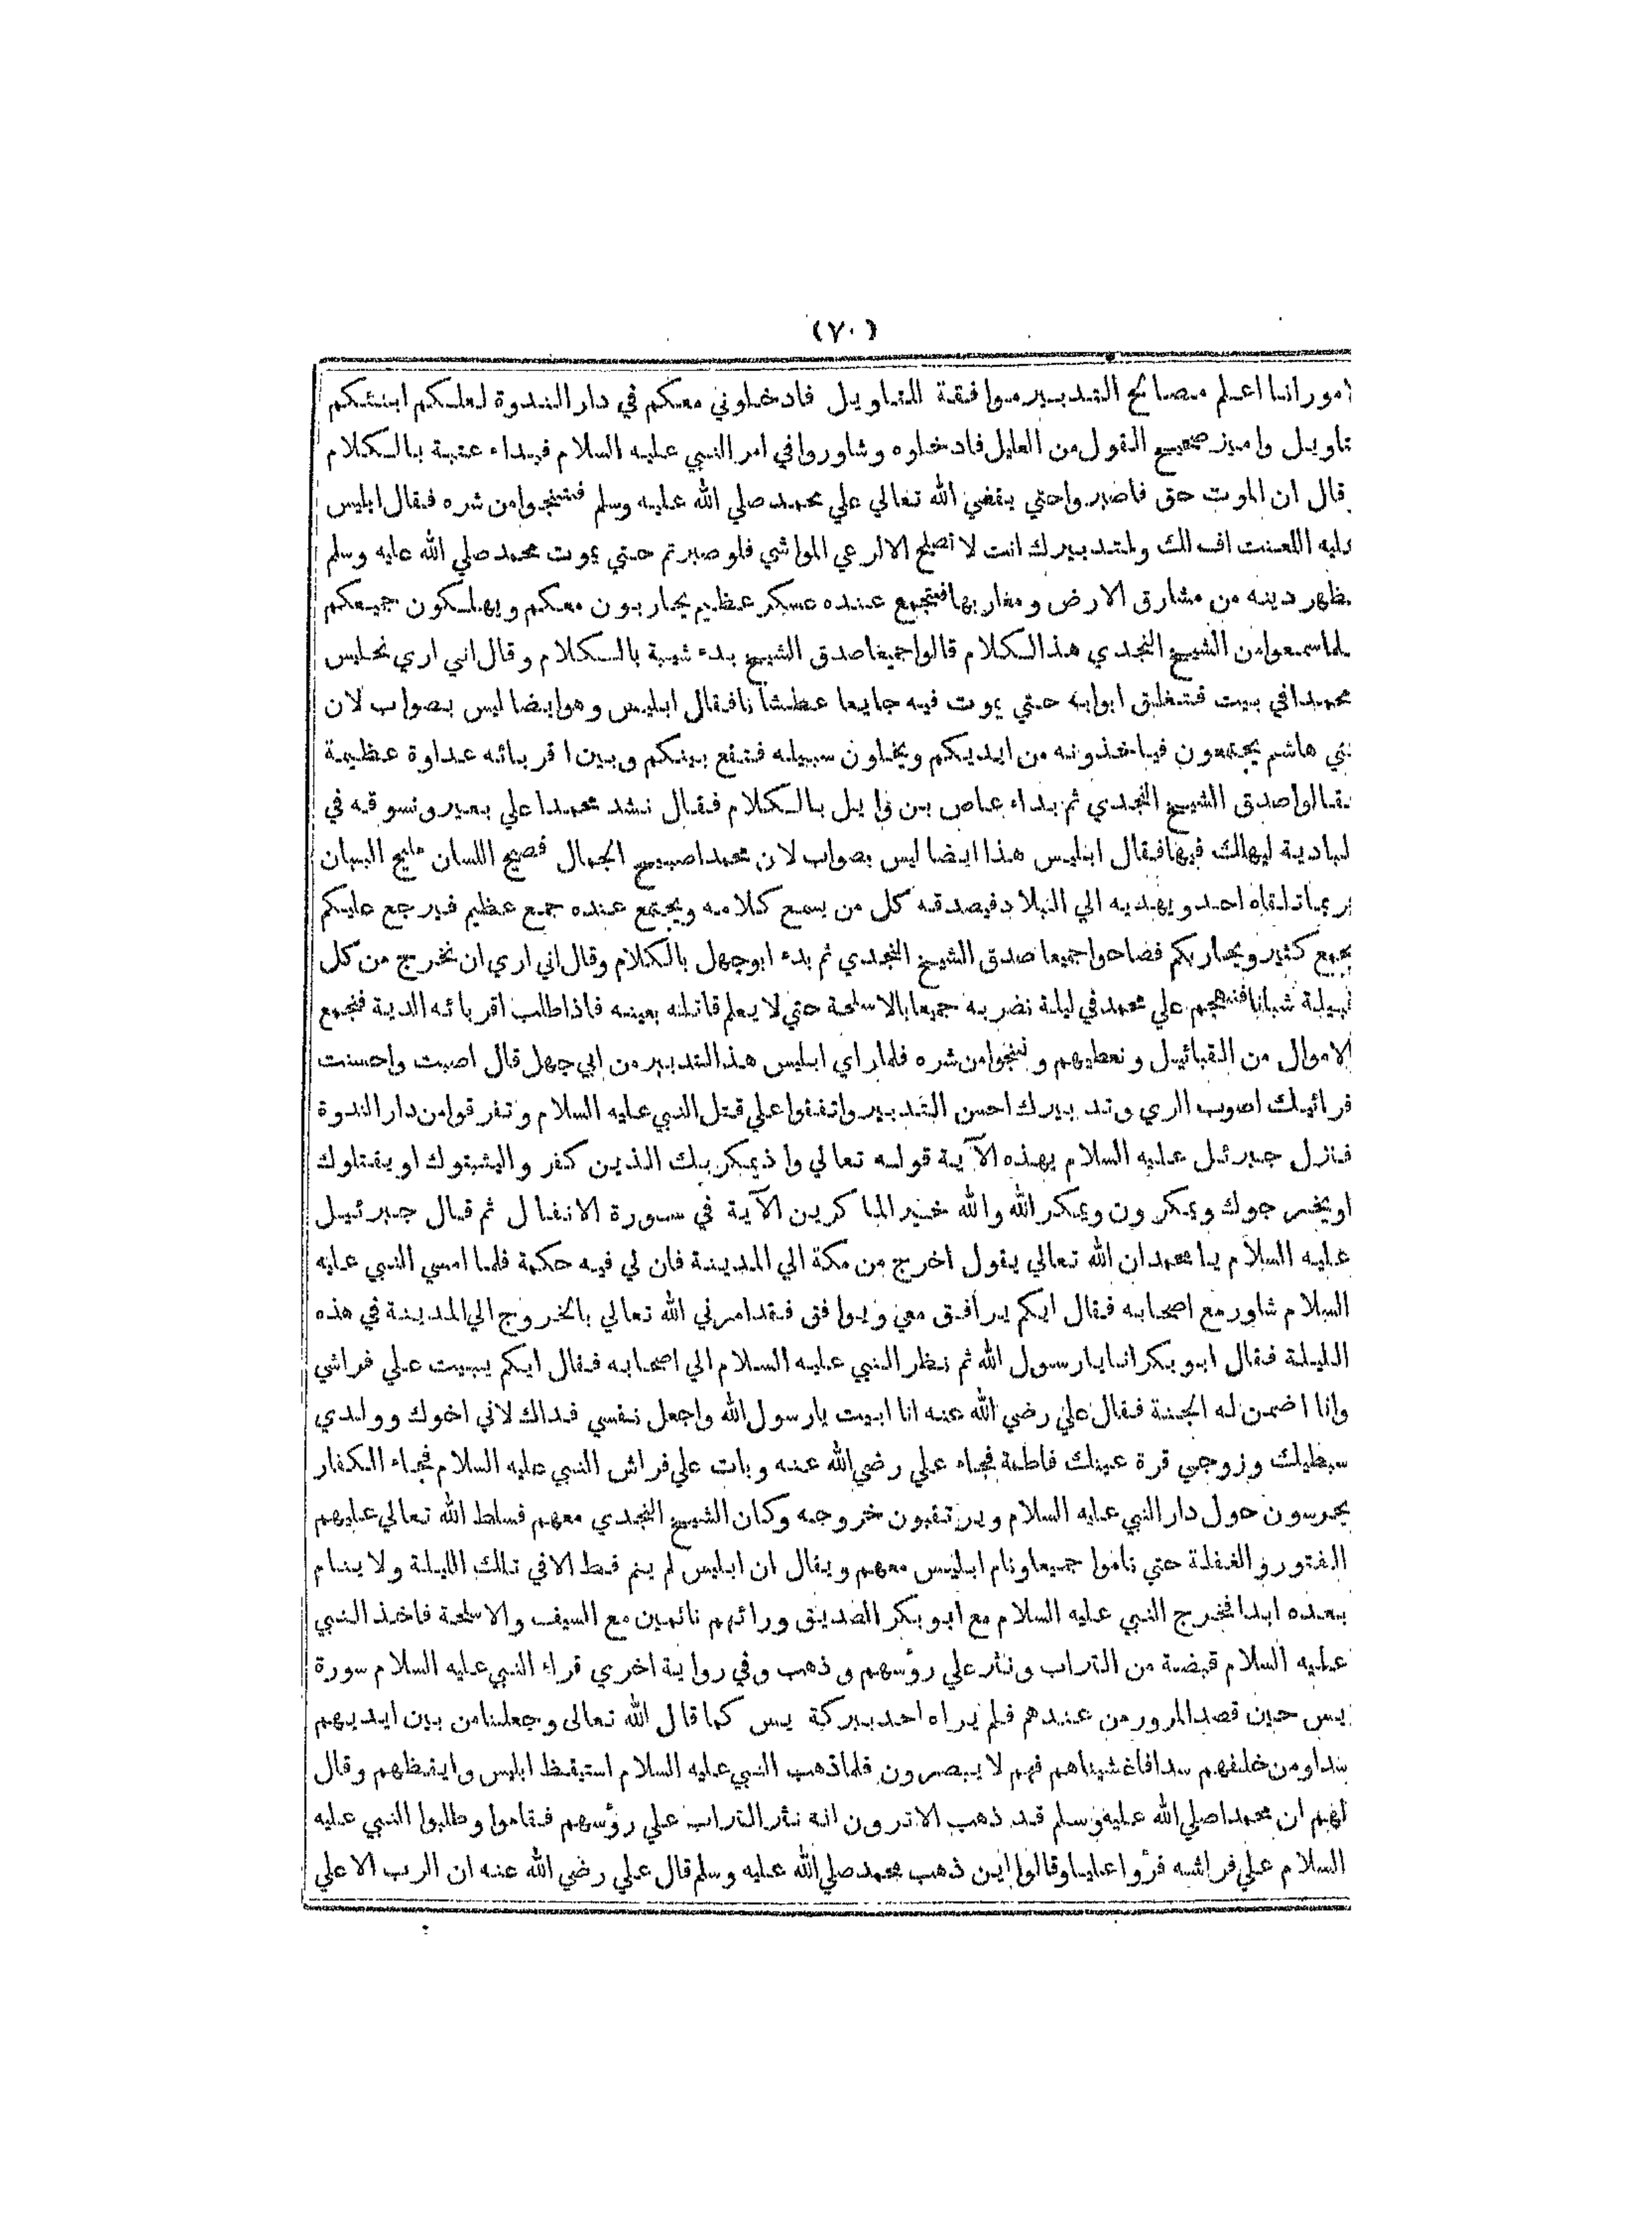 (٧٠)
امور انا اعلم مصالح التدبير موافقة التاويل فادخلوني معكم في دار الندوة لعلكم ابنئكم
تاويل واميز صحيح القول من العليل فادخلوه وشاوروا في امر النبي عليه السلام فبداء عتبة بالكلام
قال ان الموت حق فاصبروا حتي يقضي الله تعالي علي محمد صلي الله عليه وسلم فتنجوا من شره فقال ابليس
عليه اللعنت اف لك ولتدبيرك انت لا تصلح الا لرعي المواشي فلو صبرتم حتي يموت محمد صلي الله عليه وسلم
يظهر دينه من مشارق الارض ومغاربها فيجتمع عنده عسكر عظيم يحاربون معكم ويهلكون جميعكم
فلما سمعوا من الشيخ النجدي هذا الكلام قالوا جميعا صدق الشيخ بدء شيبة بالكلام وقال اني اري نحليس
محمدا في بيت فتغلق ابوابه حتي يموت فيه جايعا عطشانا فقال ابليس وهو ايضا ليس بصواب لان
بني هاشم يجتمعون فياخذونه من ايديكم ويخلون سبيله فتقع بينكم وبين اقربائه عداوة عظيمة
فقالوا صدق الشيخ النجدي ثم بداء عاص بن وايل بالكلام فقال نشد محمدا علي بعير ونسوقه في
البادية ليهلك فيها فقال ابليس هذا ايضا ليس بصواب لان محمدا صبيح الجمال فصيح اللسان مليح البيان
ربما تلقاه احد ويهديه الي البلاد فيصدقه كل من يسمع كلامه ويجتمع عنده جمع عظيم فيرجع عليكم
بجمع كثير ويحاربكم فصاحوا جميعا صدق الشيخ النجدي ثم بدء ابوجهل بالكلام وقال اني اري ان نخرج من كل
قبيلة شبانا فنهجم علي محمد في ليلة نضربه جميعا بالاسلحة حتي لا يعلم قاتله بعينه فاذا طلب اقربائه الدية فنجمع
الاموال من القبائيل ونعطيهم وننجوا من شره فلما راي ابليس هذا التدبير من ابي جهل قال اصبت واحسنت
فرائيك اصوب الري وتدبيرك احسن التدبير واتفقوا علي قتل النبي عليه السلام وتفرقوا من دار الندوة
فنزل جبرئل عليه السلام بهذه الآية قوله تعالي واذ يمكر بك الذين كفروا ليثبتوك او يقتلوك
او يخرجوك ويمكرون ويمكر الله والله خير الماكرين الآية في سورة الانفال ثم قال جبرئيل
عليه السلام يا محمد ان الله تعالي يقول اخرج من مكة الي المدينة فان لي فيه حكمة فلما امسي النبي عليه
السلام شاور مع اصحابه فقال ايكم يرافق معي ويوافق فقد امرني الله تعالي بالخروج الي المدينة في هذه
الليلة فقال ابو بكر انا يا رسول الله ثم نظر النبي عليه السلام الي اصحابه فقال ايكم يبيت علي فراشي
وانا اضمن له الجنة فقال علي رضي الله عنه انا ابيت يا رسول الله واجعل نفسي فداك لاني اخوك وولدي
سبطيك وزوجي قرة عينك فاطمة فجاء علي رضي الله عنه وبات علي فراش النبي عليه السلام فجاء الكفار
يحرسون حول دار النبي عليه السلام ويرتقبون خروجه وكان الشيخ النجدي معهم فسلط الله تعالي عليهم
الفتور والغفلة حتي ناموا جميعا ونام ابليس معهم ويقال ان ابليس لم ينم قط الا في تلك الليلة ولا ينام
بعده ابدا فخرج النبي عليه السلام مع ابو بكر الصديق ورائهم نائمين مع السيف والاسلحة فاخذ النبي
عليه السلام قبضة من التراب ونثر علي رؤسهم وذهب وفي رواية اخري قراء النبي عليه السلام سورة
يس حين قصد المرور من عندهم فلم يراه احد ببركة يس كما قال الله تعالى وجعلنا من بين ايديهم
سدا ومن خلفهم سدا فاغشيناهم فهم لا يبصرون فلما ذهب النبي عليه السلام استيقظ ابليس وايقظهم وقال
لهم ان محمدا صلي الله عليه وسلم قد ذهب الا ترون انه نثر التراب علي رؤسهم فقاموا وطلبوا النبي عليه
السلام علي فراشه فرؤا عليا وقالوا اين ذهب محمد صلي الله عليه وسلم قال علي رضي الله عنه ان الرب الاعلي